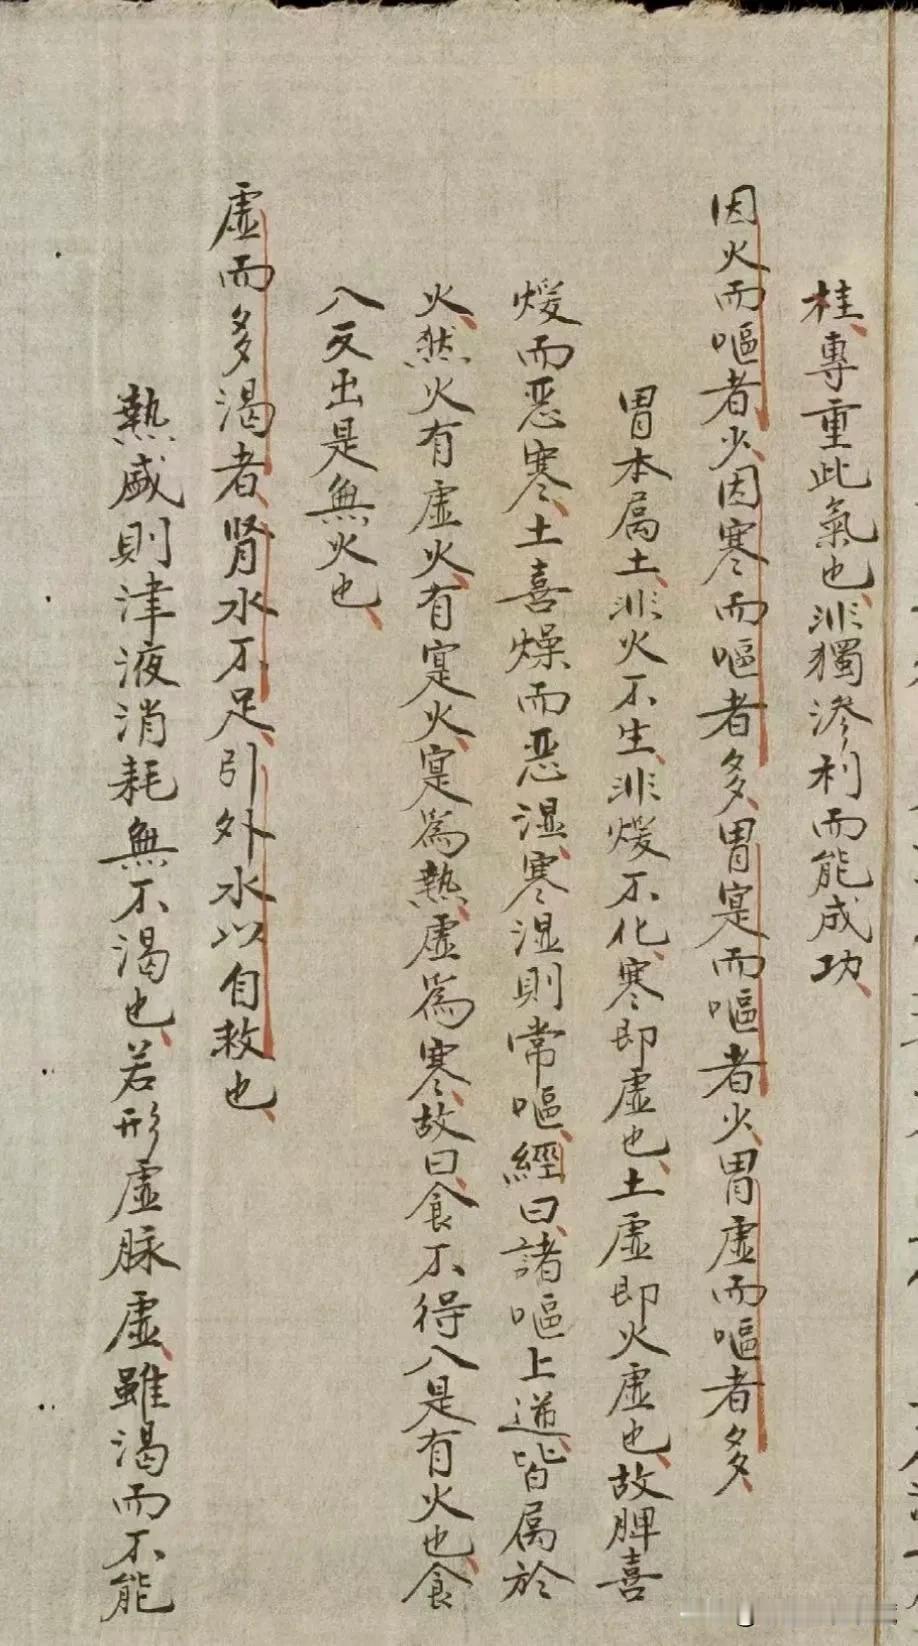 桂專重此氣也非獨滲利而能成功
因火而嘔者少因寒而嘔者多胃寔而嘔者少胃虛而嘔者多
胃本属土非火不生非煖不化寒即虛也土虛即火虛也故脾喜
煖而恶寒土喜燥而恶湿寒湿則常嘔經曰諸嘔上逆皆属於
火然火有虛火有寔火寔為熱虛為寒故曰食不得入是有火也食
入反出是無火也
虛而多渴者肾水不足引外水以自救也
熱盛則津液消耗無不渴也若形虛脉虛雖渴而不能